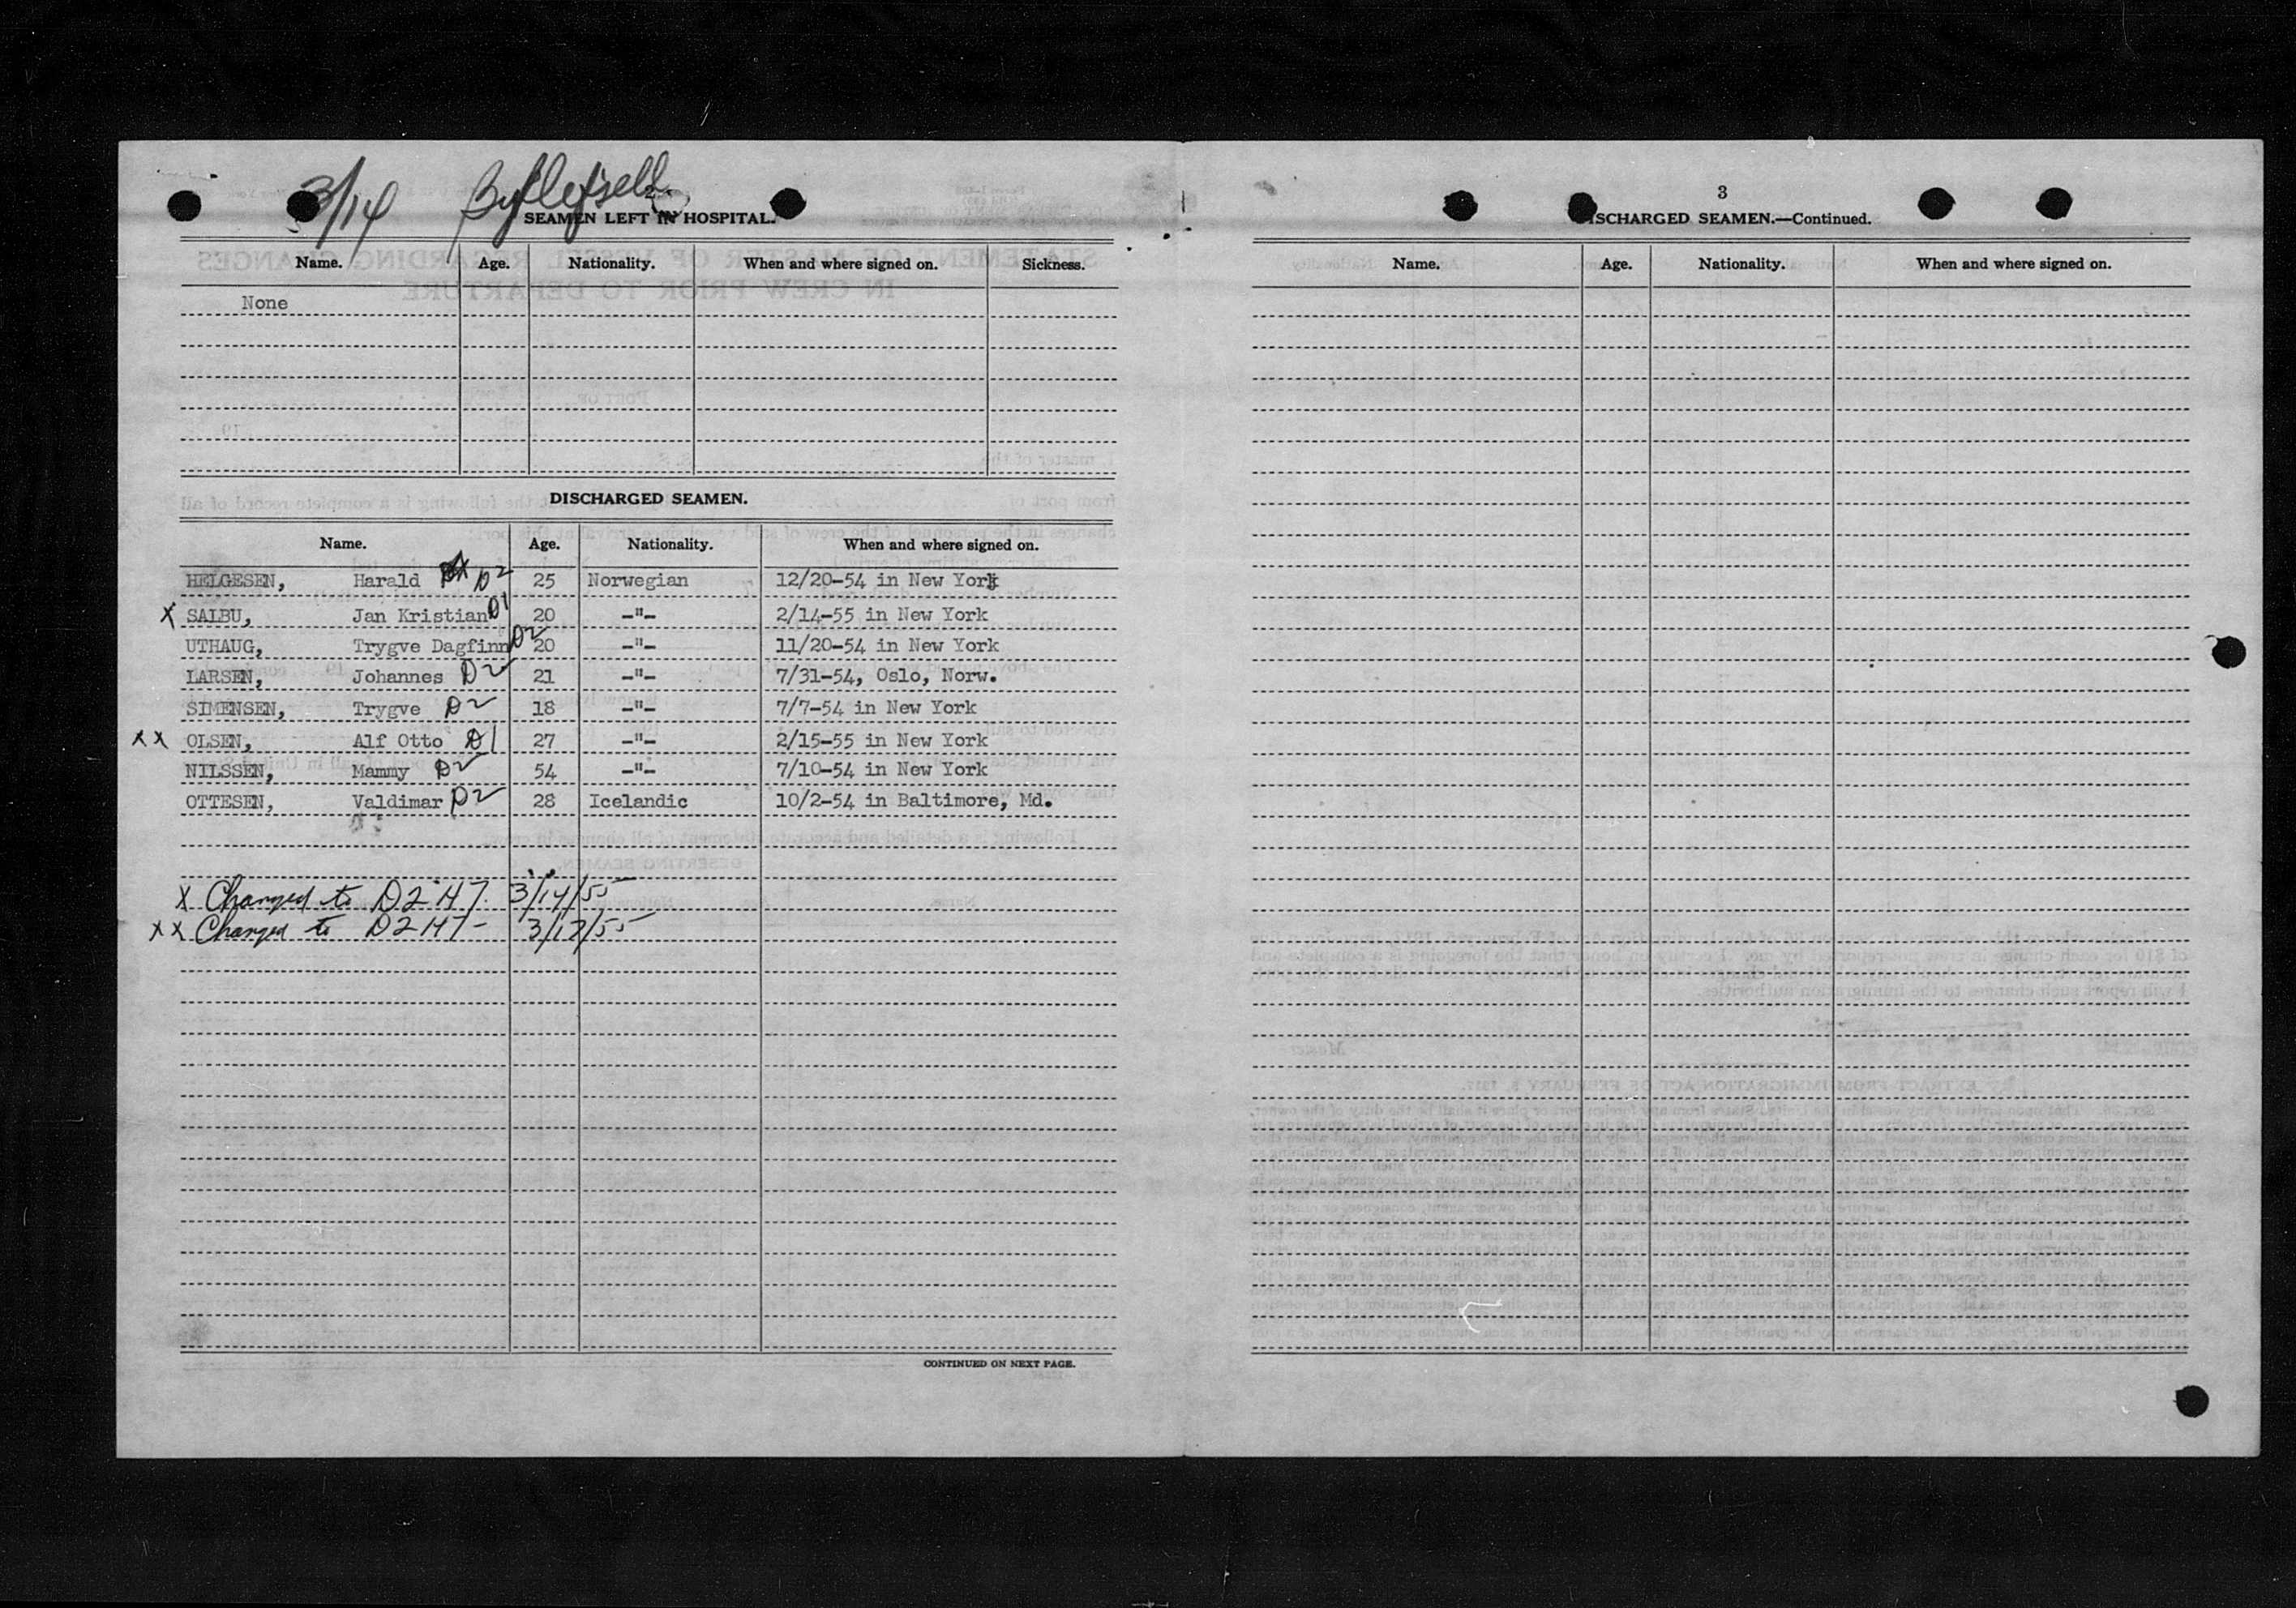 3/14 Byfleysell
SEAMEN LEFT IN HOSPITAL.
Name. Age. Nationality. When and where signed on. Sickness.
None
DISCHARGED SEAMEN.
Name. Age. Nationality. When and where signed on.
HELGESEN, Harald D2 25 Norwegian 12/20-54 in New York
X SALBU, Jan Kristian D1 20 -"- 2/14-55 in New York
UTHAUG, Trygve Dagfinn D2 20 -"- 11/20-54 in New York
LARSEN, Johannes D2 21 -"- 7/31-54, Oslo, Norw.
SIMENSEN, Trygve D2 18 -"- 7/7-54 in New York
XX OLSEN, Alf Otto D1 27 -"- 2/15-55 in New York
NILSSEN, Mammy D2 54 -"- 7/10-54 in New York
OTTESEN, Valdimar D2 28 Icelandic 10/2-54 in Baltimore, Md.
X Changed to D2 H7. 3/14/55
XX Changed to D2 H7- 3/17/55
CONTINUED ON NEXT PAGE.
3
SCHARGED SEAMEN.—Continued.
Name. Age. Nationality. When and where signed on.